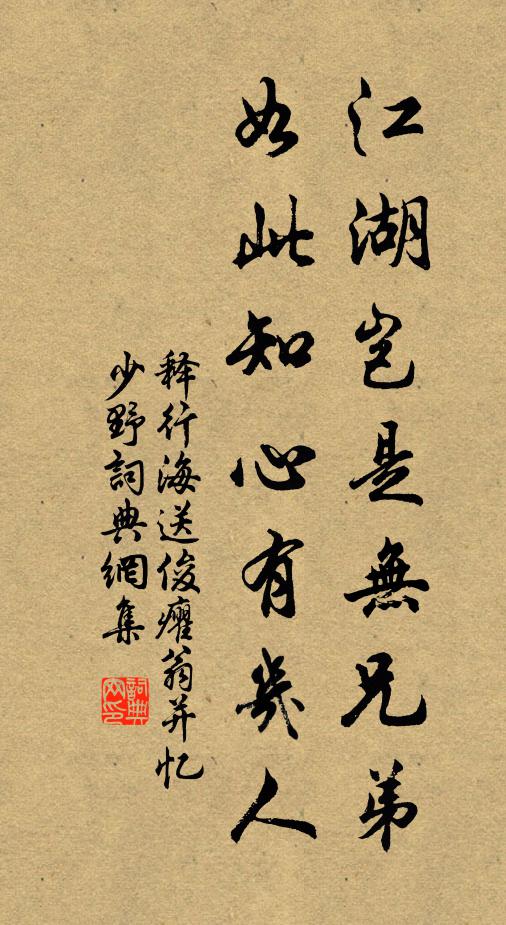 江湖岂是無兄弟
如此知心有幾人
释行海送俊癯翁并忆
少野詞典網集
詞典网印